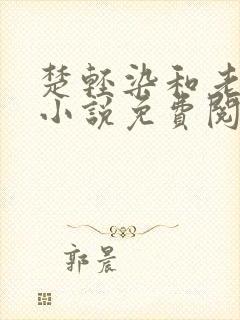 楚輕染和老
小說免費閱
郭晨